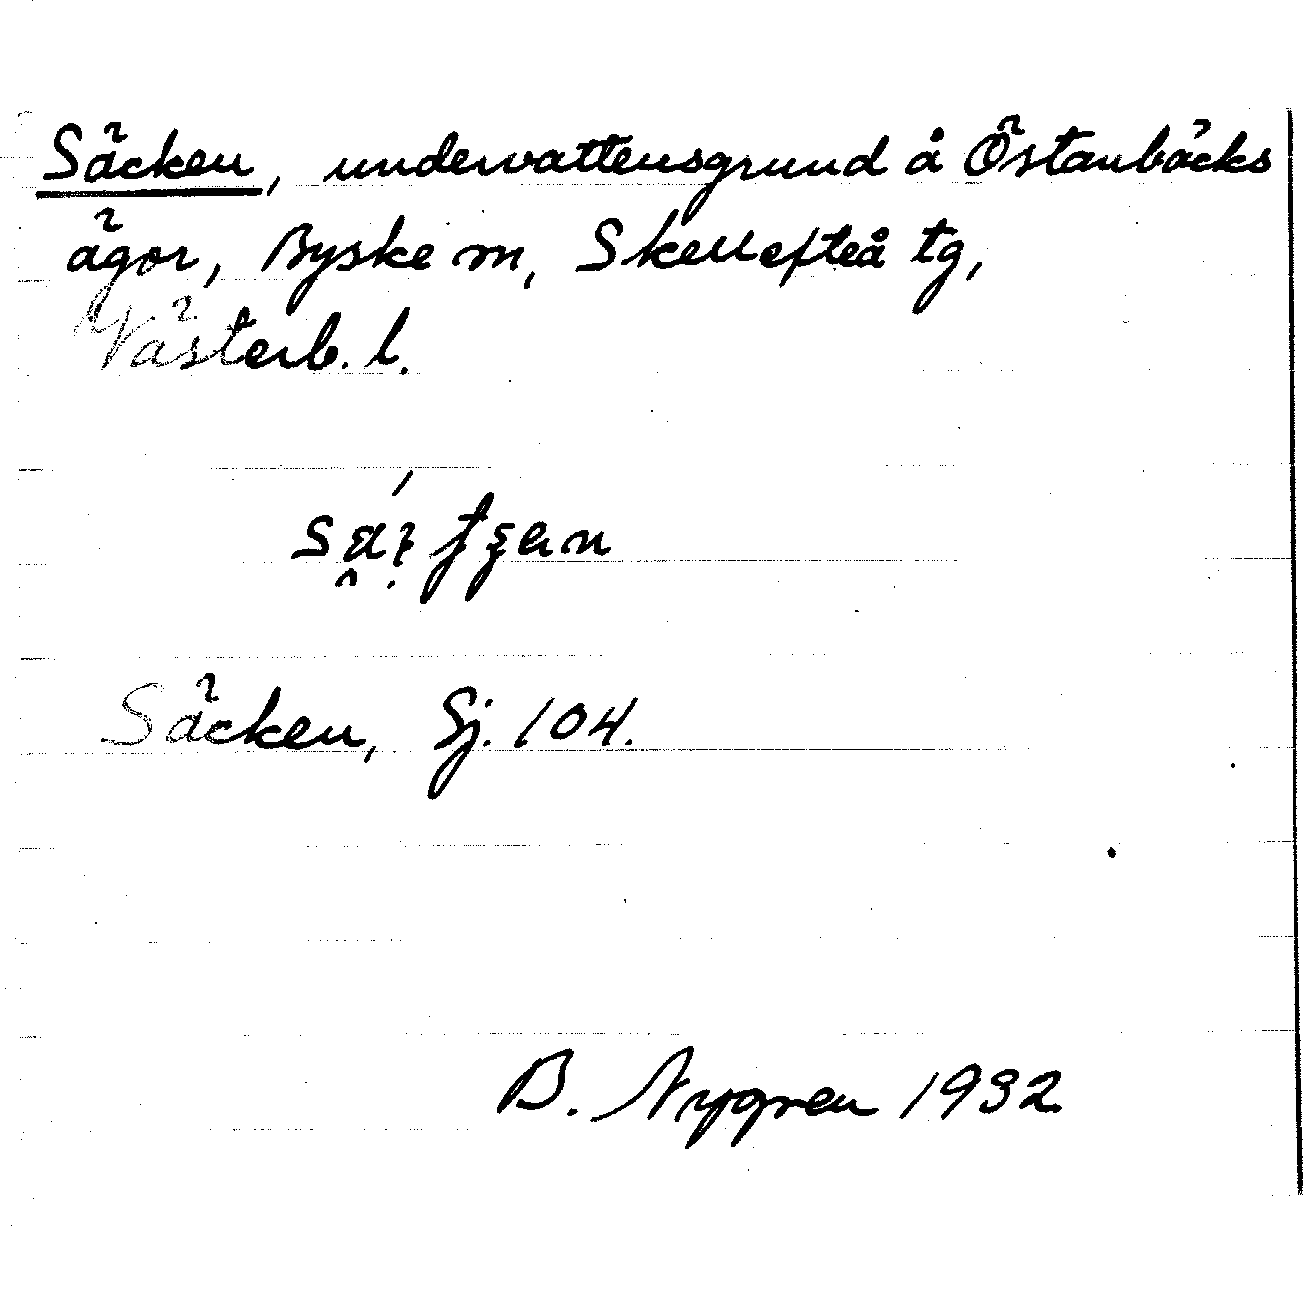 Säcken, undervattensgrund å Östanbäcks
ägor, Byske sn, Skellefteå tg,
Västerb. l.
Säcken, Sj. 104.
B. Nygren 1932